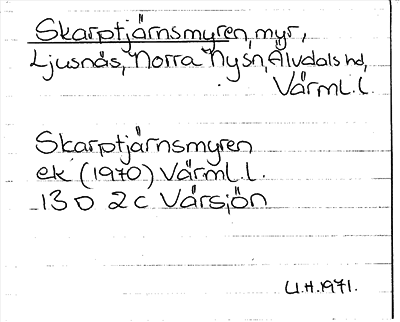 Skarptjärnsmyren, myr,
Ljusnäs, Norra Nysn, Älvdals hd,
Värml. l.
Skarptjärnsmyren
ek (1970) Värml. l.
13 D 2 c Vårsjön
U.H. 1971.